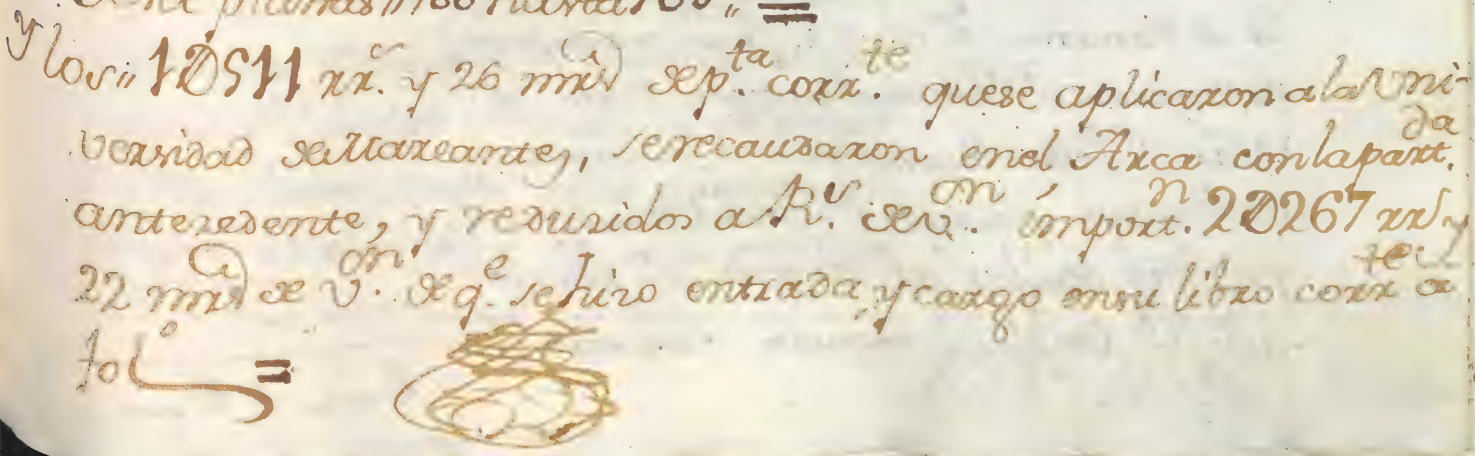 y los,, 1D511 rr.^s y 26 mrs de p.^ta corr.^te que se aplicaron a la Uni-
versidad de Mareantes, se recaudaron en el Arca con la part.^da
antezedente, y reduzidos a R.^s de v.^on import.^n 2D267 rr.^s y
22 mrs de v.^on de q.^e se hizo entrada, y cargo en su libro corr.^te a
fol.^o =